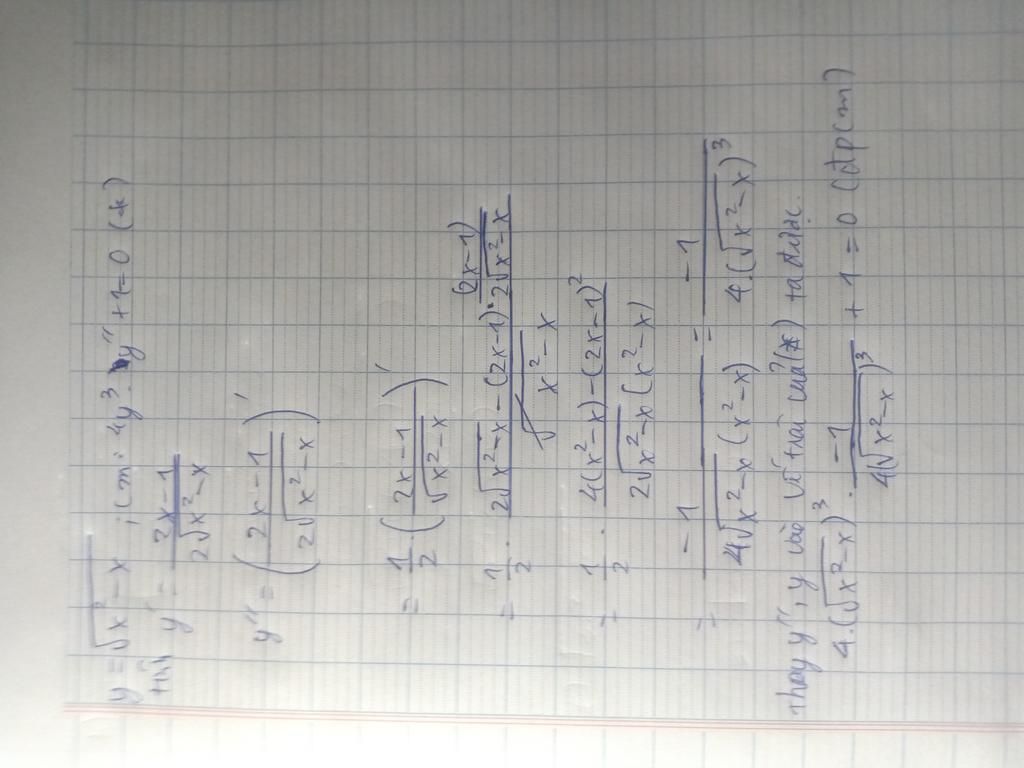 y = √(x² - x) ; cm: 4y³. y'' + 1 = 0 (*)
y' = (2x - 1)/(2√(x² - x))
y'' = ((2x - 1)/(2√(x² - x)))'
= 1/2 . ((2x - 1)/(√(x² - x)))'
= 1/2 . (2√(x² - x) - (2x - 1) . (2x - 1)/(2√(x² - x)))/(√(x² - x))
= 1/2 . (4(x² - x) - (2x - 1)²)/(2√(x² - x) (x² - x))
= -1/(4√(x² - x) (x² - x)) = -1/(4.(√(x² - x))³)
Thay y'', y vào vế trái của (*) ta được
4.(√(x² - x))³ . -1/(4(√(x² - x))³) + 1 = 0 (đpcm)